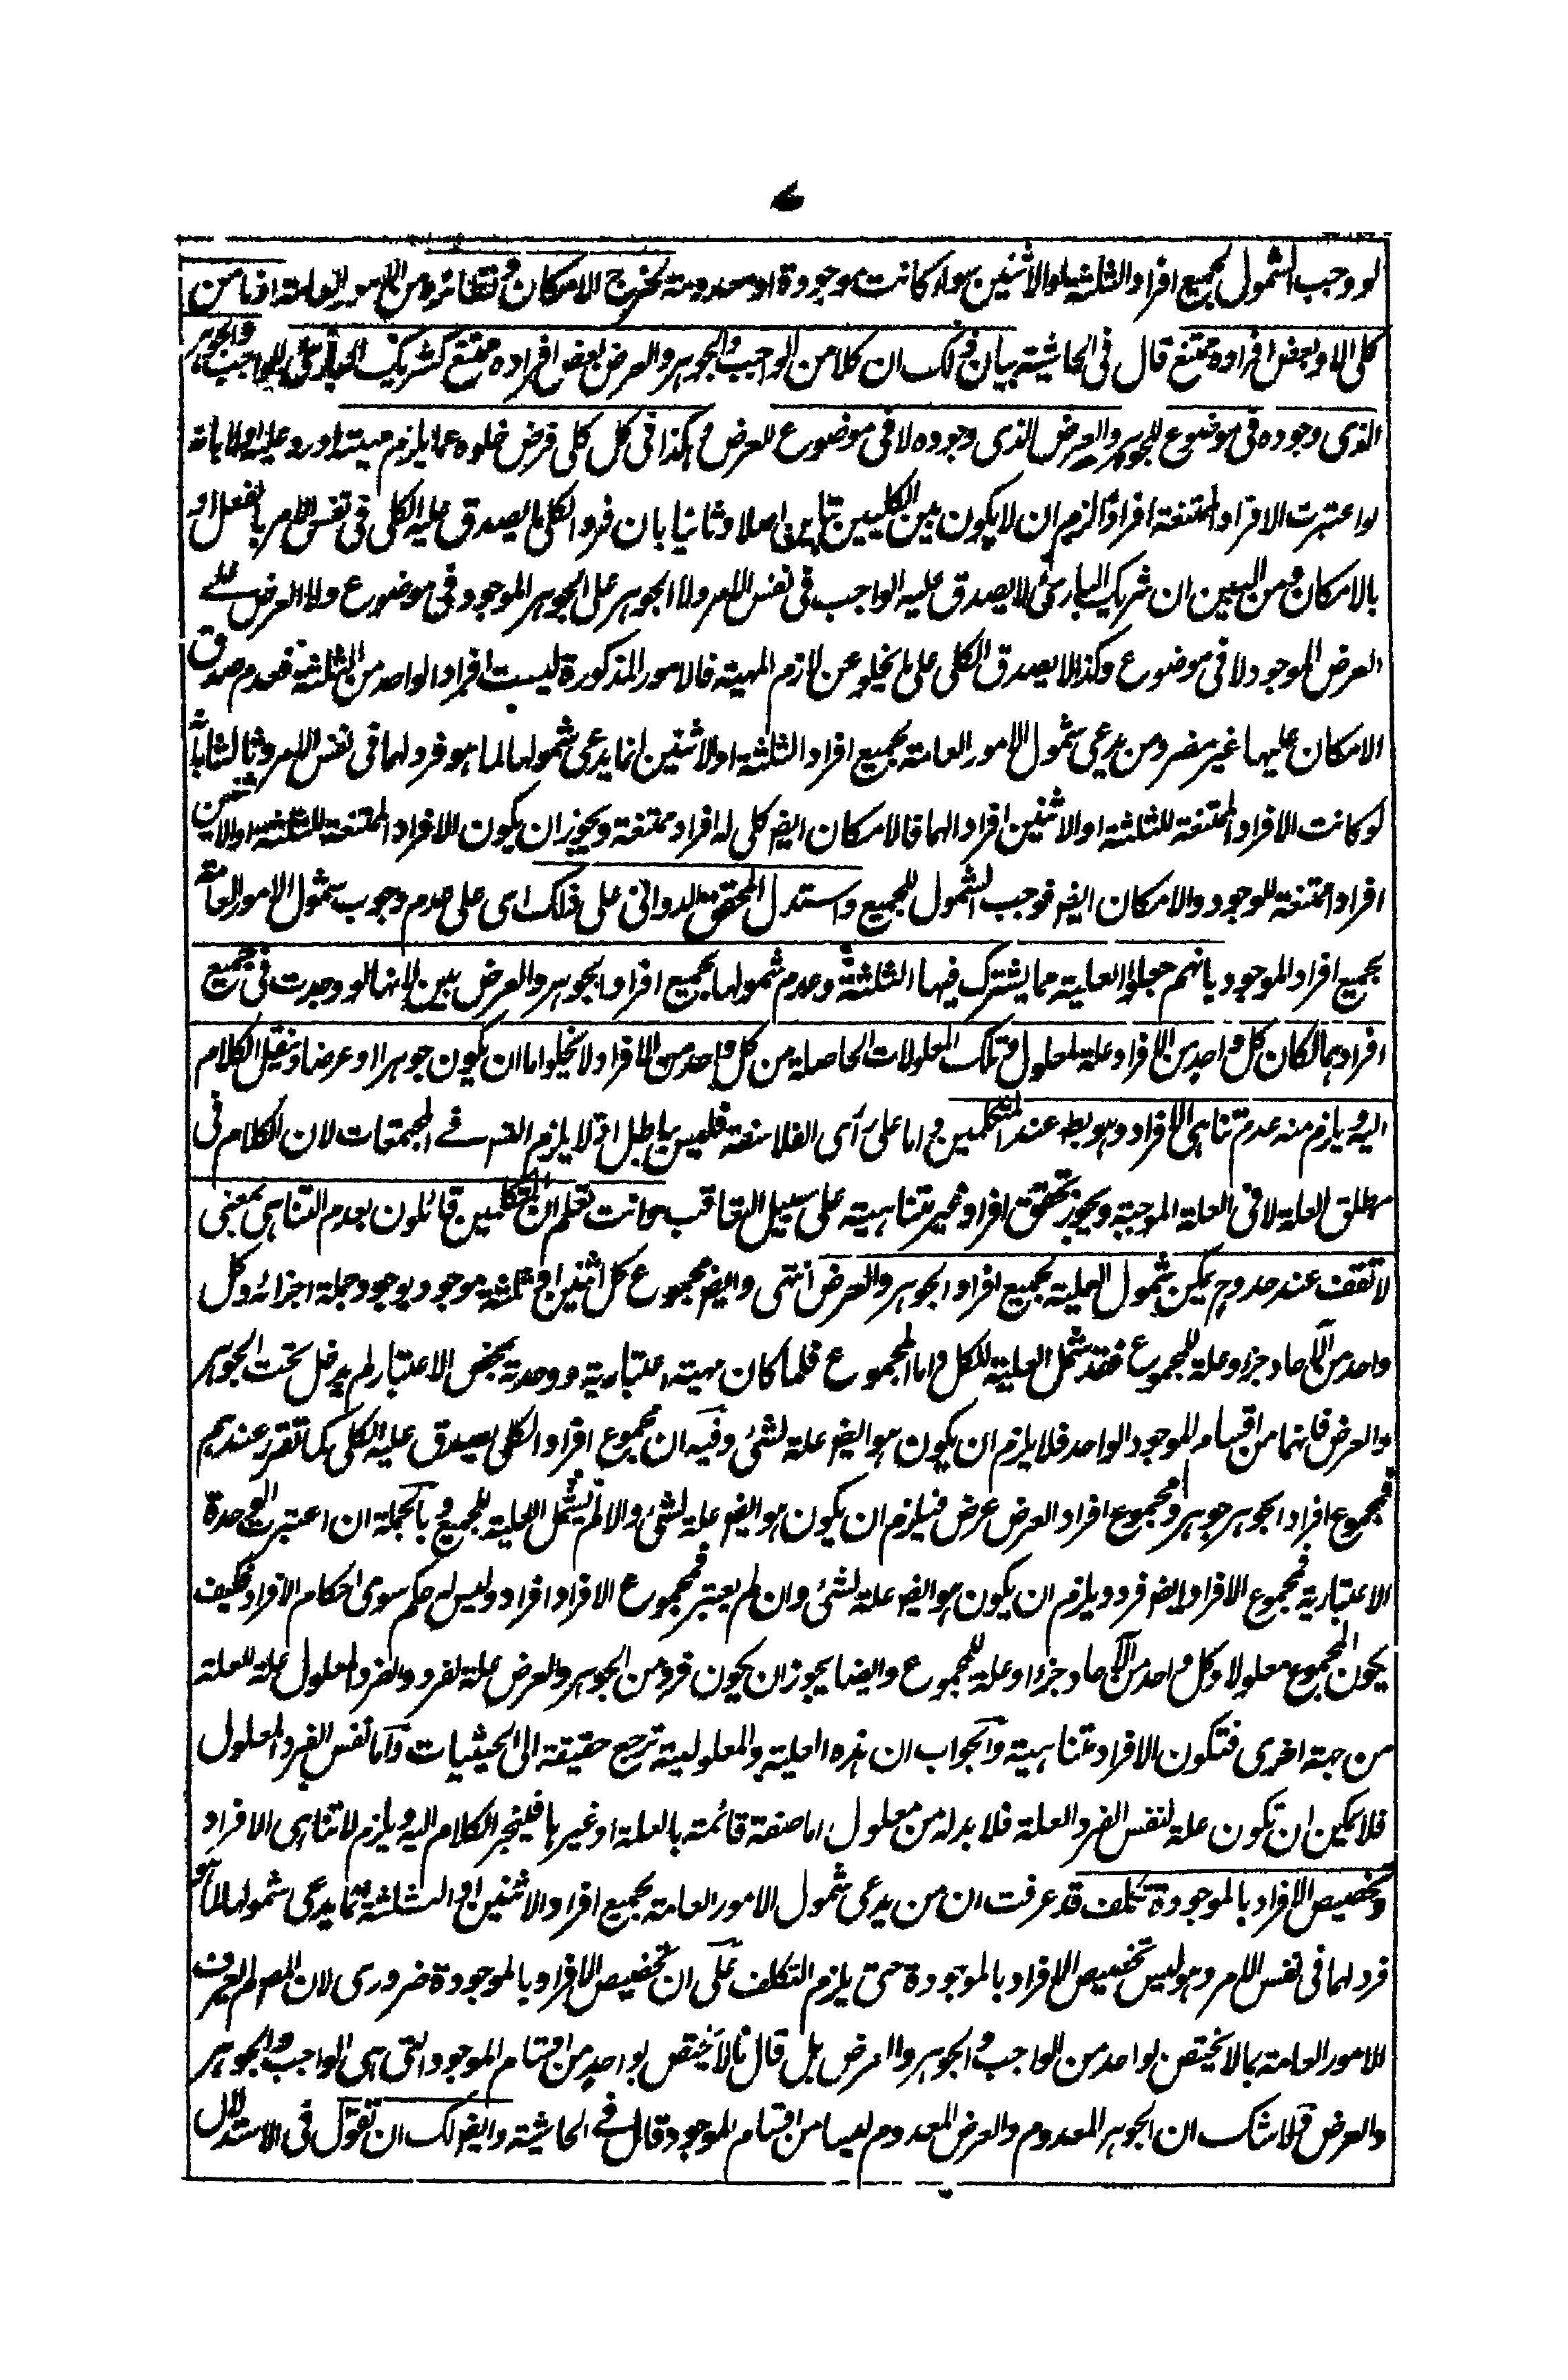 لو وجب الشمول لجميع افراد الثلثة او الاثنين سواء كانت موجودة او معدومة لخرج الامكان ونظائره من الامور العامة اذ ما من
كلى الا وبعض افراده ممتنع قال فى الحاشية بيان ذلك ان كلا من الواجب والجوهر والعرض بعض افراده ممتنع كشريك البارئ للواجب والجوهر
الذى وجوده فى موضوع للجوهر والعرض الذى وجوده لا فى موضوع للعرض وهكذا فى كل كلى فرض خلوه عما يلزم مهيته اورد عليه اولا بانه
لو اعتبرت الافراد الممتنعة افرادا لزم ان لا يكون بين الكليين تباين اصلا وثانيا بان فرد الكلى ما يصدق عليه الكلى فى نفس الامر بالفعل او
بالامكان ومن البين ان شريك البارئ لا يصدق عليه الواجب فى نفس الامر ولا الجوهر على الجوهر الموجود فى موضوع ولا العرض على
العرض الموجود لا فى موضوع وكذا لا يصدق الكلى على ما يخلو عن لازم المهية فالامور المذكورة ليست افراد الواحد من الثلثة فعدم صدق
الامكان عليها غير مضر ومن يدعى شمول الامور العامة لجميع افراد الثلثة او الاثنين انما يدعى شمولها لما هو فرد لهما فى نفس الامر وثالثا بانه
لو كانت الافراد الممتنعة للثلثة او الاثنين افراد الهما فالامكان ايضا كلى له افراد ممتنعة ويجوز ان يكون الافراد الممتنعة للثلثة او الاثنين
افراد ممتنعة للوجود والامكان ايضا فوجب الشمول للجميع واستدل المحقق الدوانى على ذلك اى على عدم وجوب شمول الامور العامة
لجميع افراد الموجود بانهم جعلوا العلية مما يشترك فيها الثلثة وعدم شمولها لجميع افراد الجوهر والعرض بين لانها لو وجدت فى جميع
افرادهما لكان كل واحد من الافراد علة لمعلول وتلك المعلولات الحاصلة من كل واحد من الافراد لا يخلو اما ان يكون جوهرا او عرضا وينقل الكلام
اليه ويلزم منه عدم تناهى الافراد وهو بط عند المتكلمين واما على رأى الفلاسفة فليس بباطل اذ لا يلزم التس فى المجتمعات لان الكلام فى
مطلق العلة لا فى العلة الموجبة ويجوز تحقق افراد غير متناهية على سبيل التعاقب وانت تعلم ان المتكلمين قائلون بعدم التناهى بمعنى
لا تقف عند حد وح يمكن شمول العلية لجميع افراد الجوهر والعرض انتهى وايضا مجموع كل اثنين او ثلثة موجود بوجود جملة اجزائه وكل
واحد من الآحاد جزء وعلة للمجموع فقد شمل العلية للكل واما المجموع فلما كان مهية اعتبارية ووحدته بمحض الاعتبار لم يدخل تحت الجوهر
والعرض فانهما من اقسام الموجود الواحد فلا يلزم ان يكون هو ايضا علة لشئ وفيه ان مجموع افراد الكلى يصدق عليه الكلى كما تقرر عندهم
فمجموع افراد الجوهر جوهر ومجموع افراد العرض عرض فيلزم ان يكون هو ايضا علة لشئ والا لم يشمل العلية للجميع وبالجملة ان اعتبرت الوحدة
الاعتبارية فمجموع الافراد ايضا فرد ويلزم ان يكون هو ايضا علة لشئ وان لم يعتبر فمجموع الافراد افراد وليس له حكم سوى احكام الافراد فكيف
يكون المجموع معلولا وكل واحد من الآحاد جزءا وعلة للمجموع وايضا يجوز ان يكون فرد من الجوهر والعرض علة لفرد والفرد المعلول علة للعلة
من جهة اخرى فتكون الافراد متناهية والجواب ان هذه العلية والمعلولية ترجع حقيقة الى الحيثيات واما نفس الفرد المعلول
فلا يمكن ان تكون علة لنفس الفرد العلة فلا بد له من معلول اما صفة قائمة بالعلة او غيرها فينجر الكلام اليه ويلزم لا تناهى الافراد
وتخصيص الافراد بالموجودة تكلف قد عرفت ان من يدعى شمول الامور العامة لجميع افراد الاثنين او الثلثة انما يدعى شمولها لما هو
فرد لهما فى نفس الامر وهو ليس تخصيص الافراد بالموجودة حتى يلزم التكلف على ان تخصيص الافراد بالموجودة ضرورى لان المص لم يعرف
الامور العامة بما لا يختص لواحد من الواجب والجوهر والعرض بل قال ما لا يختص بواحد من اقسام الموجود التى هى الواجب والجوهر
والعرض فلا شك ان الجوهر المعدوم والعرض المعدوم ليسا من اقسام الموجود قال فى الحاشية وايضا لك ان تقول فى الاستدلال